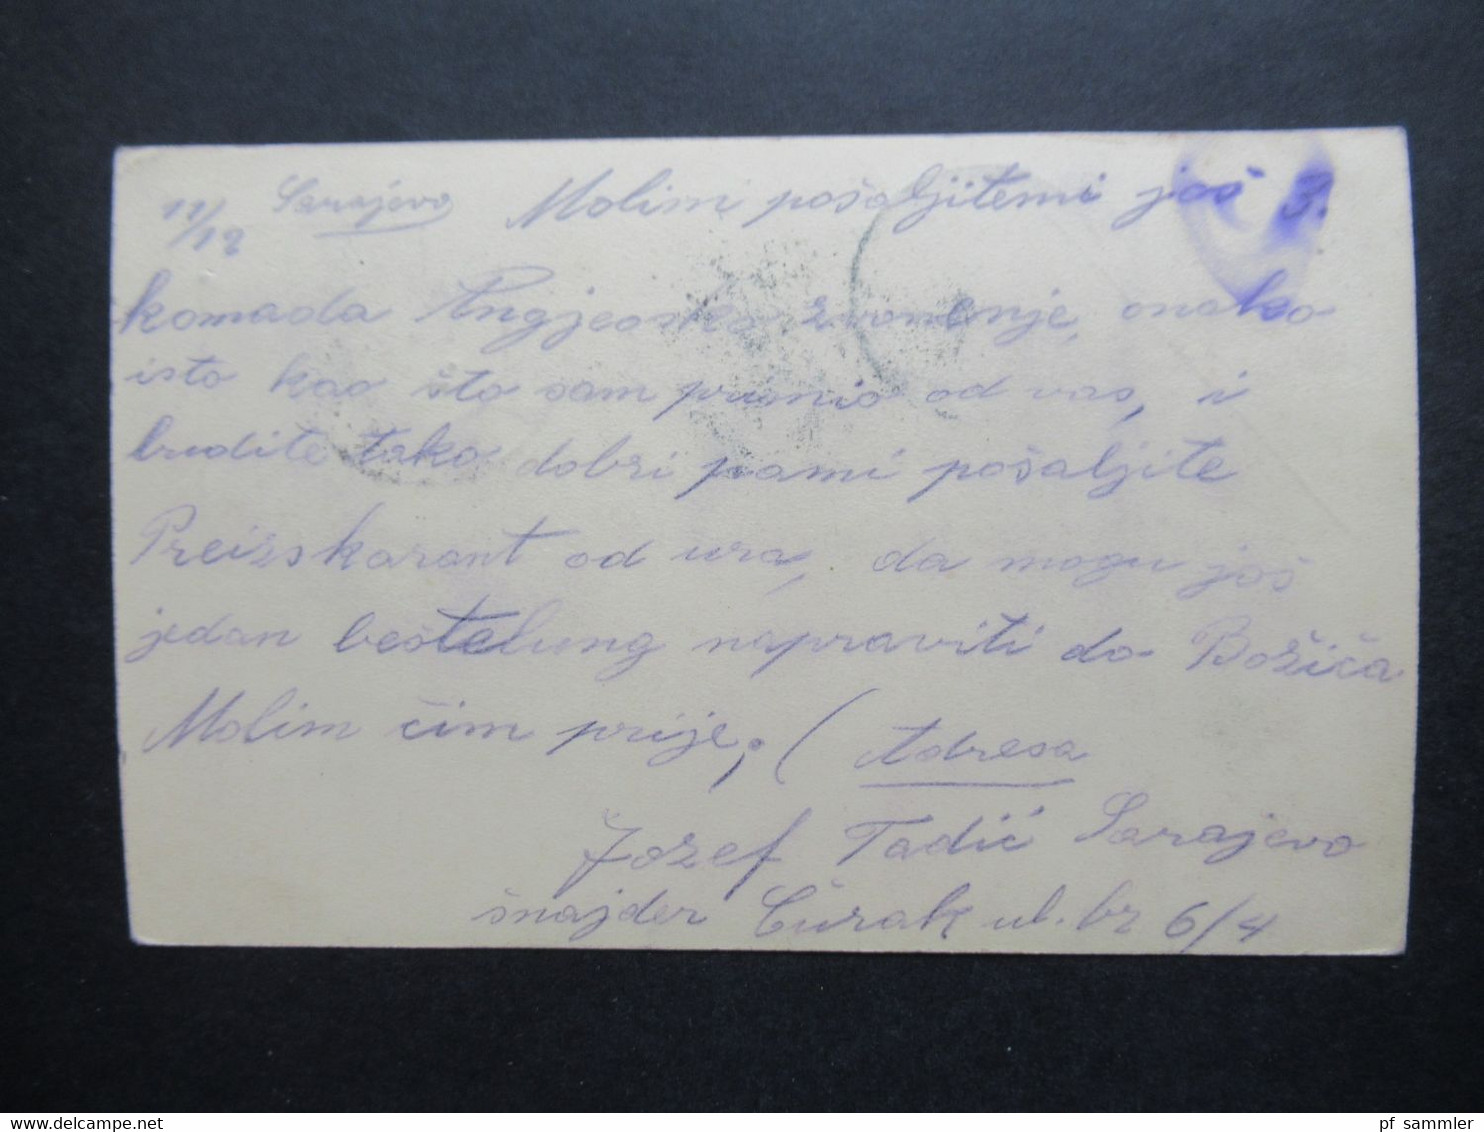 11/12 Sarajevo Molim pošaljitemi još 3.
komada Angjeosko zvonenje, onako
isto kao što sam primio od vas, i
budite tako dobri pa mi pošaljite
Preiskorant od ura, da mogu još
jedan bestelung napraviti do Božića
Molim čim prije; ( Adresa
Jozef Tadić Sarajevo
šnajder Čurak ul. br 6/4
www.delcampe.net
pf sammler